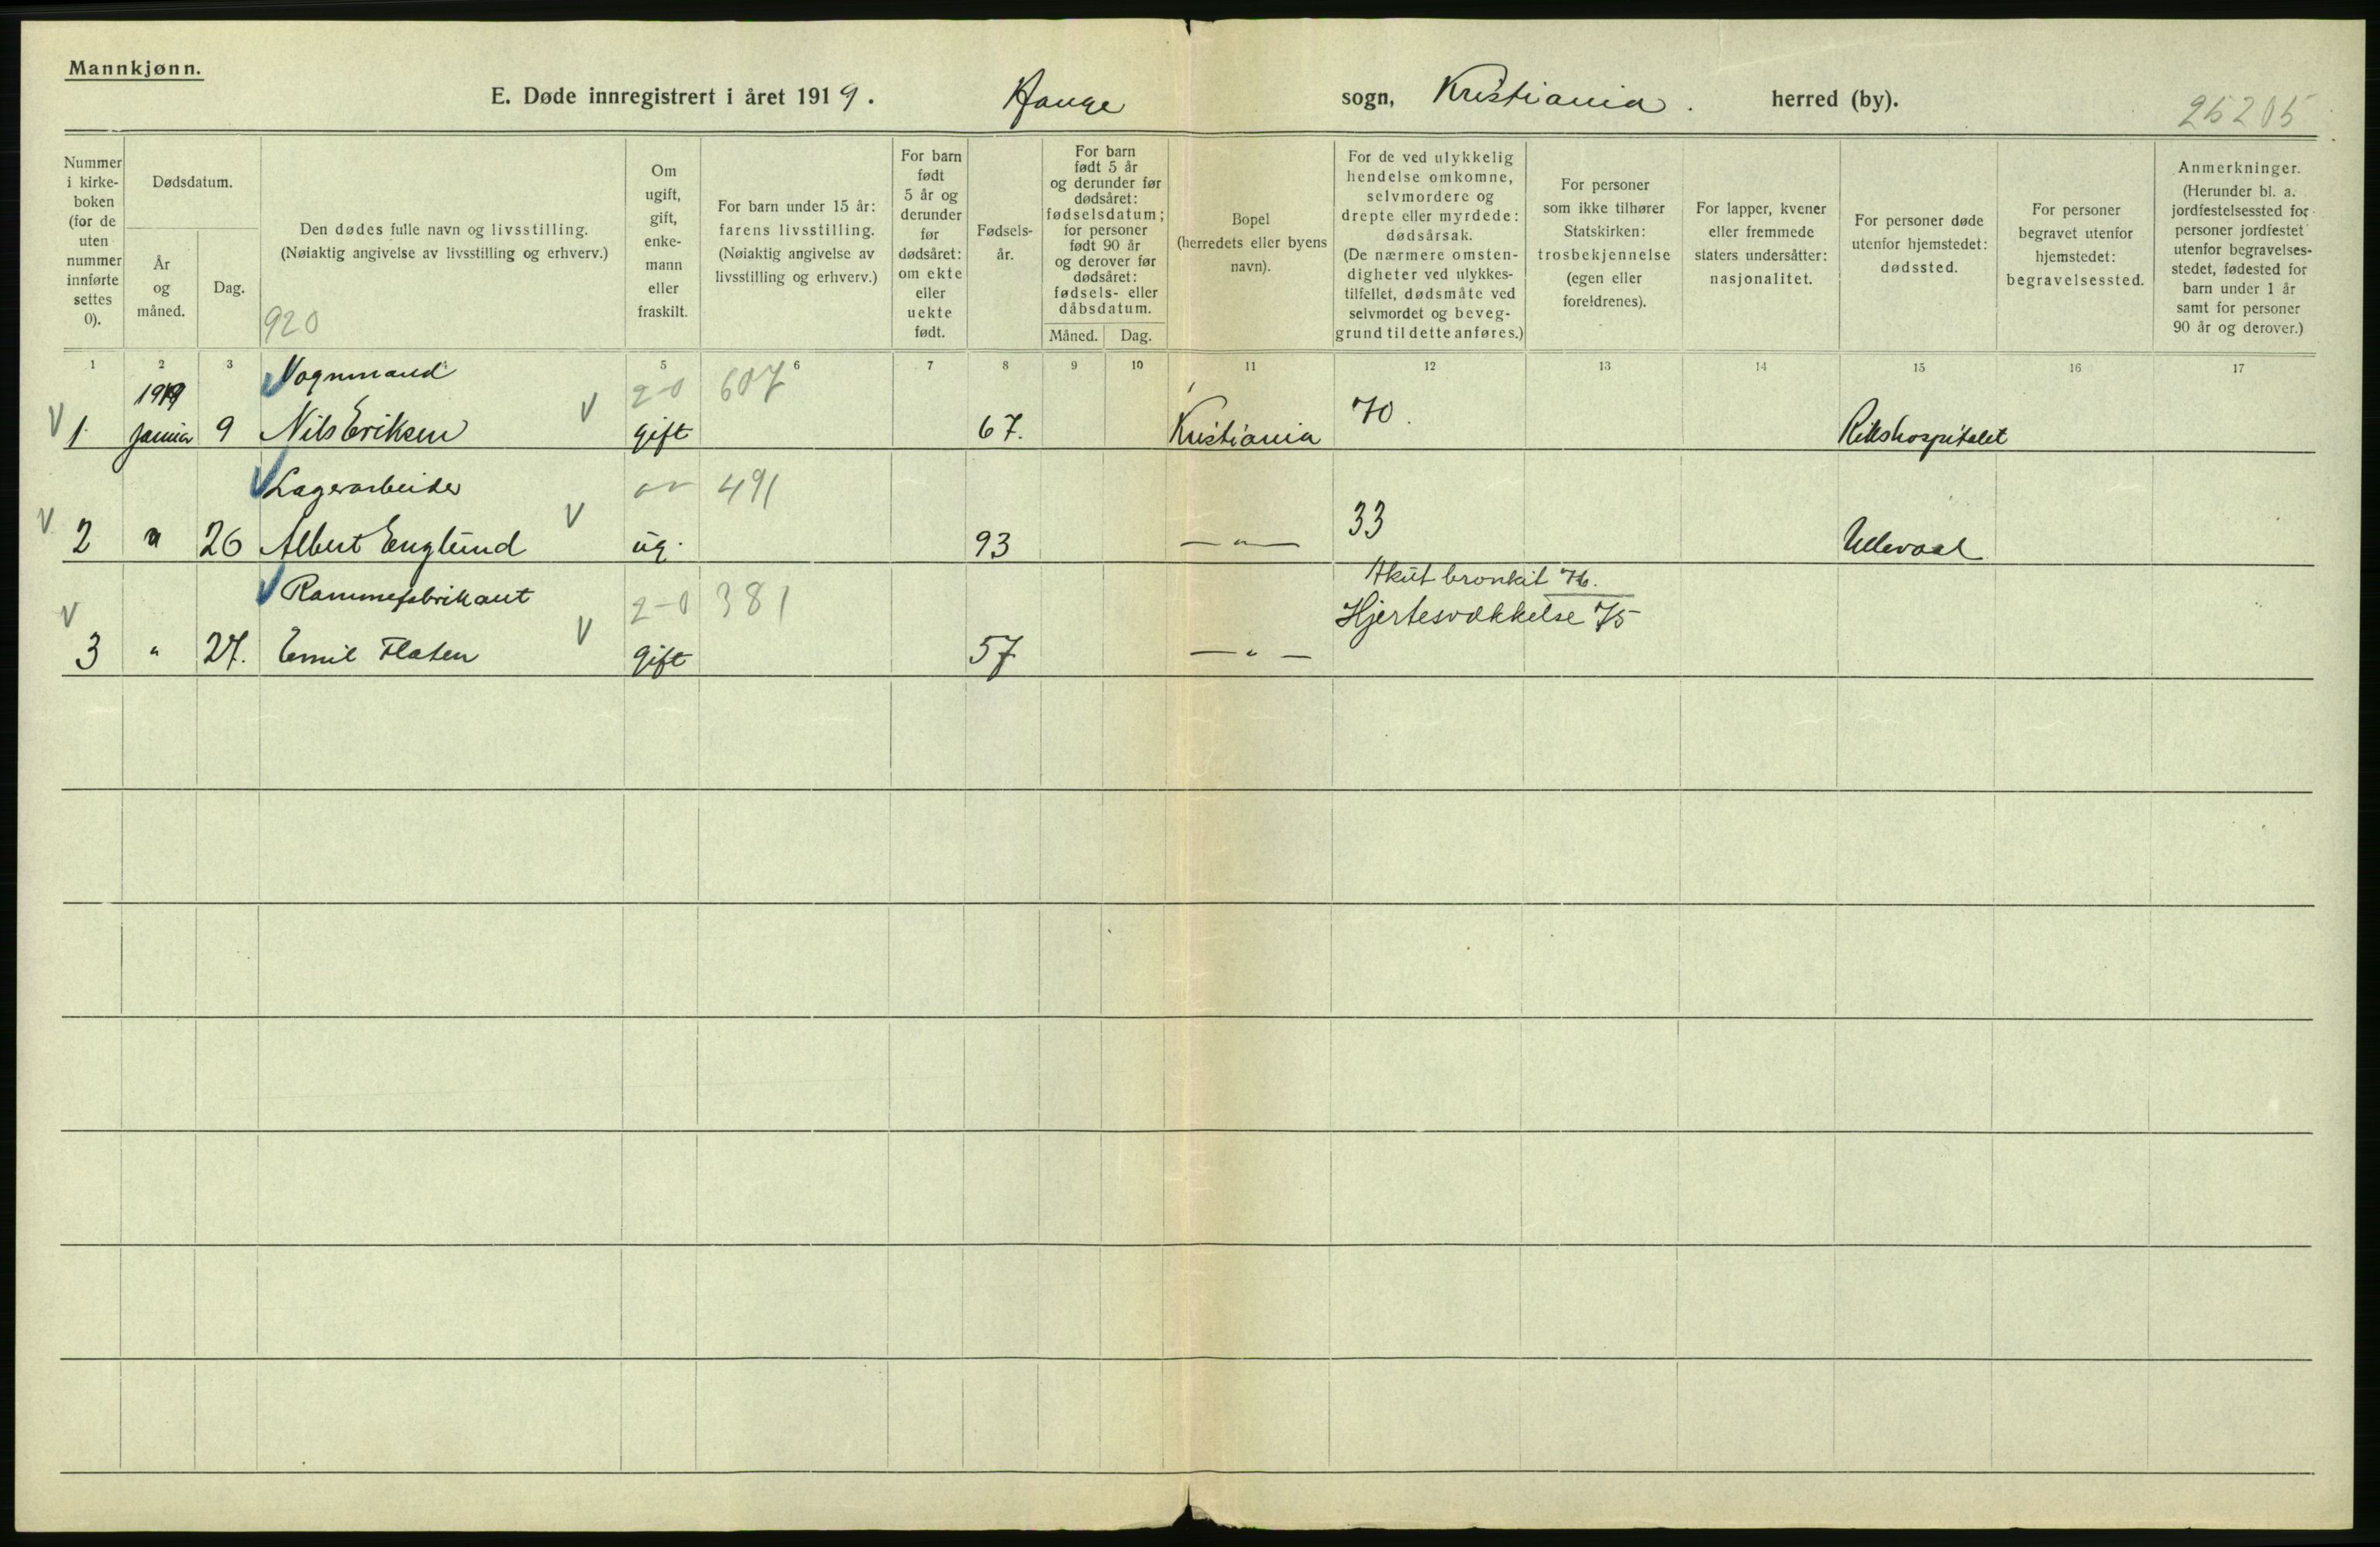 Mannkjønn.
E. Døde innregistrert i året 1919. Hauge sogn, Kristiania. herred (by).
25205
Nummer i kirke-boken (for de uten nummer innførte settes 0).
Dødsdatum.
År og måned.
Dag.
Den dødes fulle navn og livsstilling.
(Nøiaktig angivelse av livsstilling og erhverv.)
920
Om ugift, gift, enke-mann eller fraskilt.
For barn under 15 år: farens livsstilling.
(Nøiaktig angivelse av livsstilling og erhverv.)
For barn født 5 år og derunder før dødsåret: om ekte eller uekte født.
Fødsels-år.
For barn født 5 år og derunder før dødsåret: fødselsdatum; for personer født 90 år og derover før dødsåret: fødsels- eller dåbsdatum.
Måned. Dag.
Bopel (herredets eller byens navn).
For de ved ulykkelig hendelse omkomne, selvmordere og drepte eller myrdede: dødsårsak.
(De nærmere omsten-digheter ved ulykkes-tilfellet, dødsmåte ved selvmordet og beveg-grund til dette anføres.)
For personer som ikke tilhører Statskirken: trosbekjennelse (egen eller foreldrenes).
For lapper, kvener eller fremmede staters undersåtter: nasjonalitet.
For personer døde utenfor hjemstedet: dødssted.
For personer begravet utenfor hjemstedet: begravelsessted.
Anmerkninger.
(Herunder bl. a. jordfestelsessted for personer jordfestet utenfor begravelses-stedet, fødested for barn under 1 år samt for personer 90 år og derover.)
1 2 3 5 6 7 8 9 10 11 12 13 14 15 16 17
1919 Vognmand 2-0 607
V 1. Januar 9 Nils Eriksen V gift 67. Kristiania 70. Rikshospitalet
Lagerarbeider 491
V 2 " 26 Albert Englund V ug. 93 — " — 33 Ullevaal
Rammefabrikant 2-0 381 Akut bronkit 76.
Hjertesvækkelse 75
V 3 " 27. Emil Flaten V gift 57 — " —